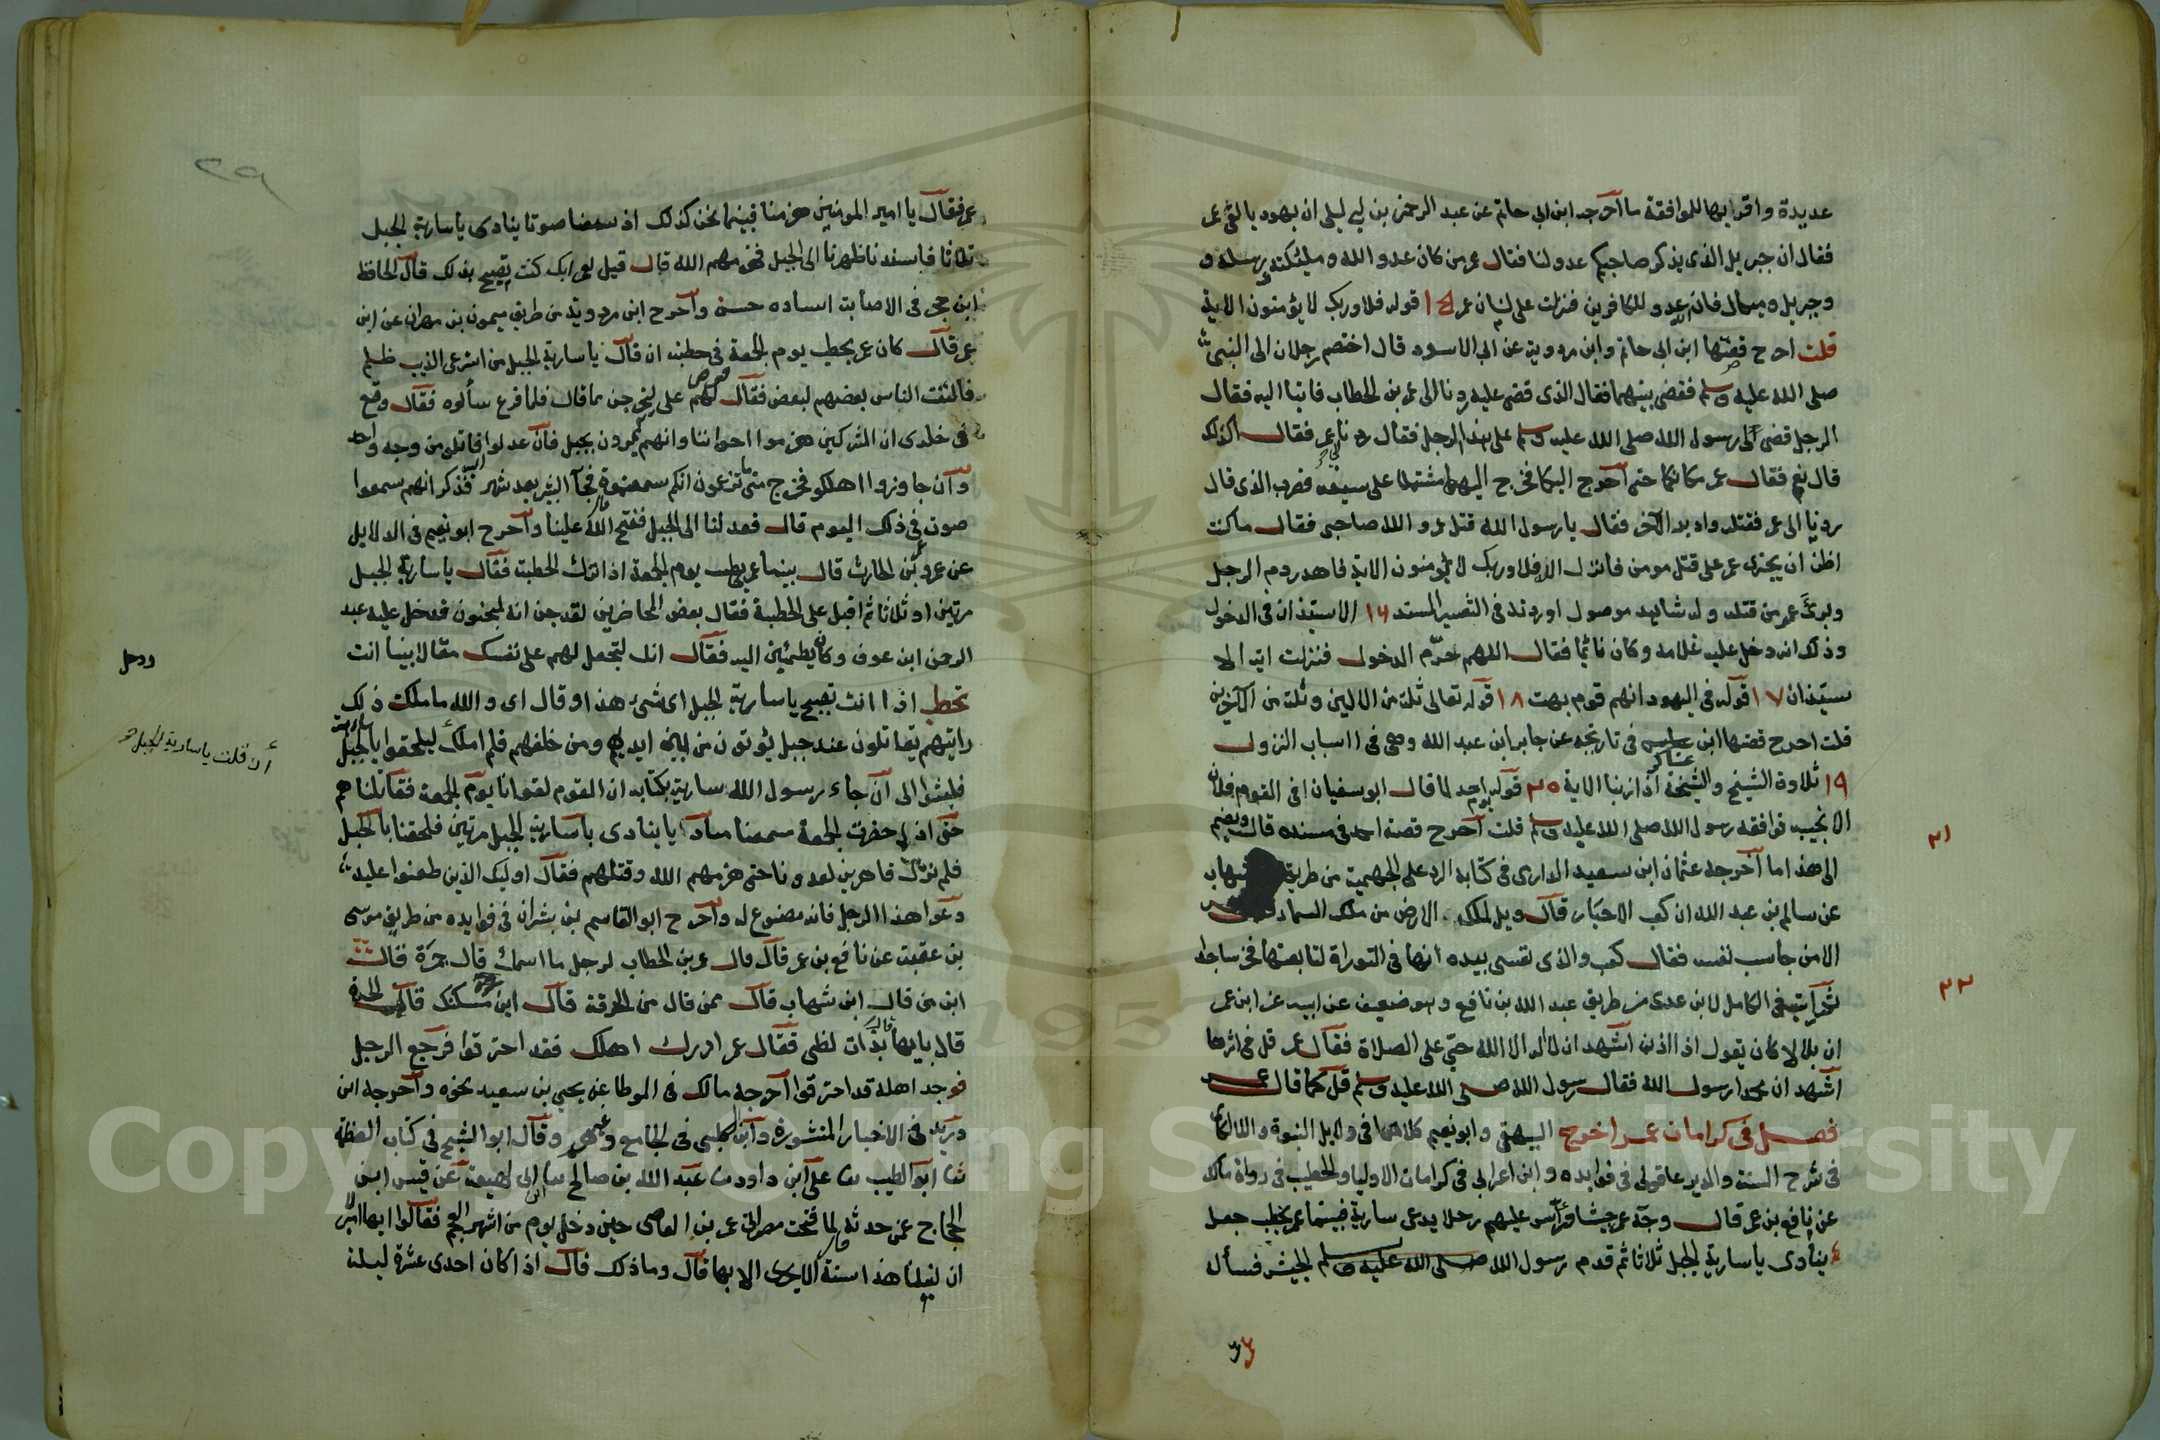 عديدة واقرابها للموافقة ما اخرجه ابن ابي حاتم عن عبد الرحمن بن ابي ليلى ان يهوديا لقى عمر
فقال ان جبريل الذى يذكر صاحبكم عدو لنا فقال عمر من كان عدو الله وملئكته ورسله و
وجبريل وميكال فان الله عدو للكافرين فنزلت على لسان عمر ١٥ قوله فلا وربك لا يؤمنون الاية
قلت اخرج قصتها ابن ابي حاتم وابن مردوية عن ابي الاسود قال اختصم رجلان الى النبى
صلى الله عليه وسلم فقضى بينهما فقال الذى قضى عليه ردنا الى عمر بن الخطاب فاتيا اليه فقال
الرجل قضى لى رسول الله صلى الله عليه وسلم على هذا الرجل فقال ردنا الى عمر فقال اكذلك
قال نعم فقال عمر مكانكما حتى اخرج اليكما فخرج اليهما مشتملا على سيفه فضرب الذى قال
ردنا الى عمر فقتله وادبر الآخر فقال يا رسول الله قتل عمر والله صاحبى فقال ما كنت
اظن ان يجترى عمر على قتل مومن فانزل الله فلا وربك لا يؤمنون الاية فاهدر دم الرجل
وبرئ عمر من قتله وله شاهد موصول اوردته فى التفسير المسند ١٦ الاستيذان فى الدخول
وذلك انه دخل عليه غلامه وكان نائما فقال اللهم حرّم الدخول فنزلت اية الا
ستيذان ١٧ قوله فى اليهود انهم قوم بهت ١٨ قوله تعالى ثلة من الاولين وثلة من الآخرين
قلت اخرج قصتها ابن عساكر فى تاريخه عن جابر ابن عبد الله وهى فى اسباب النزول
١٩ تلاوة الشيخ والشيخة اذا زنيا الاية ٢٠ قوله يوم احد لما قال ابو سفيان افى القوم فلان
الا نجيب فوافقه رسول الله صلى الله عليه وسلم قلت اخرج قصته احمد فى مسنده قال ويضم
٢١
الى هذا ما اخرجه عثمان ابن سعيد الدارى فى كتابه الرد على الجهمية من طريق شهاب
عن سالم بن عبد الله ان كعب الاحبار قال ويل لملك الارض من ملك السماء
الا من حاسب نفسه فقال كعب والذى نفسى بيده انها فى التوراة لتابعتها فخر ساجدا
٢٢
ثم رأيت فى الكامل لابن عدى من طريق عبد الله بن نافع وهو ضعيف عن ابيه عن ابن عمر
ان بلالا كان يقول اذا اذن اشهد ان لا اله الا الله حتى على الصلاة فقال عمر قل فى اثرها
اشهد ان محمدا رسول الله فقال رسول الله صلى الله عليه وسلم قل كما قال عمر
فصل فى كرامات عمر اخرج البيهقى وابو نعيم كلاهما فى دلايل النبوة واللالكاى
فى شرح السنة والدير عاقولى فى فوايده وابن اعرابى فى كرامات الاوليا والخطيب فى رواة مالك
عن نافع بن عمر قال وجه عمر جيشا ورأس عليهم رجلا يدعى سارية فبينما عمر يخطب جعل
ينادى يا سارية الجبل ثلاثا ثم قدم رسول الله صلى الله عليه وسلم الجيش فسأل
٢٩
عمر فقال يا امير المومنين هزمنا فبينما نحن كذلك اذ سمعنا صوتا ينادى يا سارية الجبل
ثلاثا فاسندنا ظهرنا الى الجبل فهزمهم الله قال قيل لعمر انك كنت تصيح بذلك قال الحافظ
ابن حجر فى الاصابة اسناده حسن واخرج ابن مردوية من طريق ميمون بن مهران عن ابن
عمر قال كان عمر يخطب يوم الجمعة فى خطبته ان قال يا سارية الجبل من استرعى الذيب ظلم
فالتفت الناس بعضهم لبعض فقال لهم على ليخرجن مما قال فلما فرغ سألوه فقال وقع
فى خلدى ان المشركين هزموا اخواننا وانهم يمرون بجبل فان عدلوا قاتلو من وجه واحد
وان جاوزوا اهلكو فخرج منى ما تزعمون انكم سمعتموه فجآ البشير بعد شهر فذكر انهم سمعوا
صوت فى ذلك اليوم قال فعدلنا الى الجبل ففتح الله علينا واخرج ابو نعيم فى الدلايل
عن عمرو بن الحارث قال بينما عمر يخطب يوم الجمعة اذ اترك الخطبة فقال يا سارية الجبل
مرتين او ثلاثا ثم اقبل على الخطبة فقال بعض الحاضرين لقد جن انه لمجنون فدخل عليه عبد
الرحمن ابن عوف وكان يطمئن اليه فقال انك لتجعل لهم على نفسك مقالا بينا انت
ودخل
تخطب اذ انت تصيح يا سارية الجبل اى شئ هذا قال اى والله ما ملكت ذلك
رايتهم يقاتلون عند جبل يؤتون من بين ايديهم ومن خلفهم فلم املك ليلحقوا بالجبل
أن قلت يا سارية الجبل
فلبثوا الى ان جاء رسول الله سارية بكتابه ان القوم لقونا يوم الجمعة فقاتلناهم
حتى اذ حضرت الجمعة سمعنا مناديا ينادى يا سارية الجبل مرتين فلحقنا بالجبل
فلم نزل قاهرين لعدونا حتى هزمهم الله وقتلهم فقال اوليك الذين طعنوا عليه
دعوا هذا الرجل فانه مصنوع له واخرج ابو القاسم بن بشران فى فوايده من طريق موسى
بن عقبة عن نافع بن عمر قال قال عمر بن الخطاب لرجل ما اسمك قال جمرة قال
ابن من قال ابن شهاب قال ممن قال من الحرقة قال اين مسكنك قال الحرة
قال بايها قال بذات لظى فقال عمر ادرك اهلك فقد احترقوا فرجع الرجل
فوجد اهله قد احترقوا اخرجه مالك فى الموطا عن يحيى بن سعيد نحوه واخرجه ابن
دريد فى الاخبار المنثورة وابن الكلبى فى الجامع وغيرهم وقال ابو الشيخ فى كتاب العظمة
ثنا ابو الطيب ثنا على ابن داود ثنا عبد الله بن صالح ثنا ابن لهيعة عن قيس ابن
الحجاج عمن حدثه لما فتحت مصر اتى عمر بن العاصى حين دخل يوم من اشهر العجم فقالوا ايها الامير
ان لنيلنا هذا سنة لا يجرى الا بها قال وما ذلك قال اذا كان احدى عشرة ليلة
Copyright © King Saud University
1957